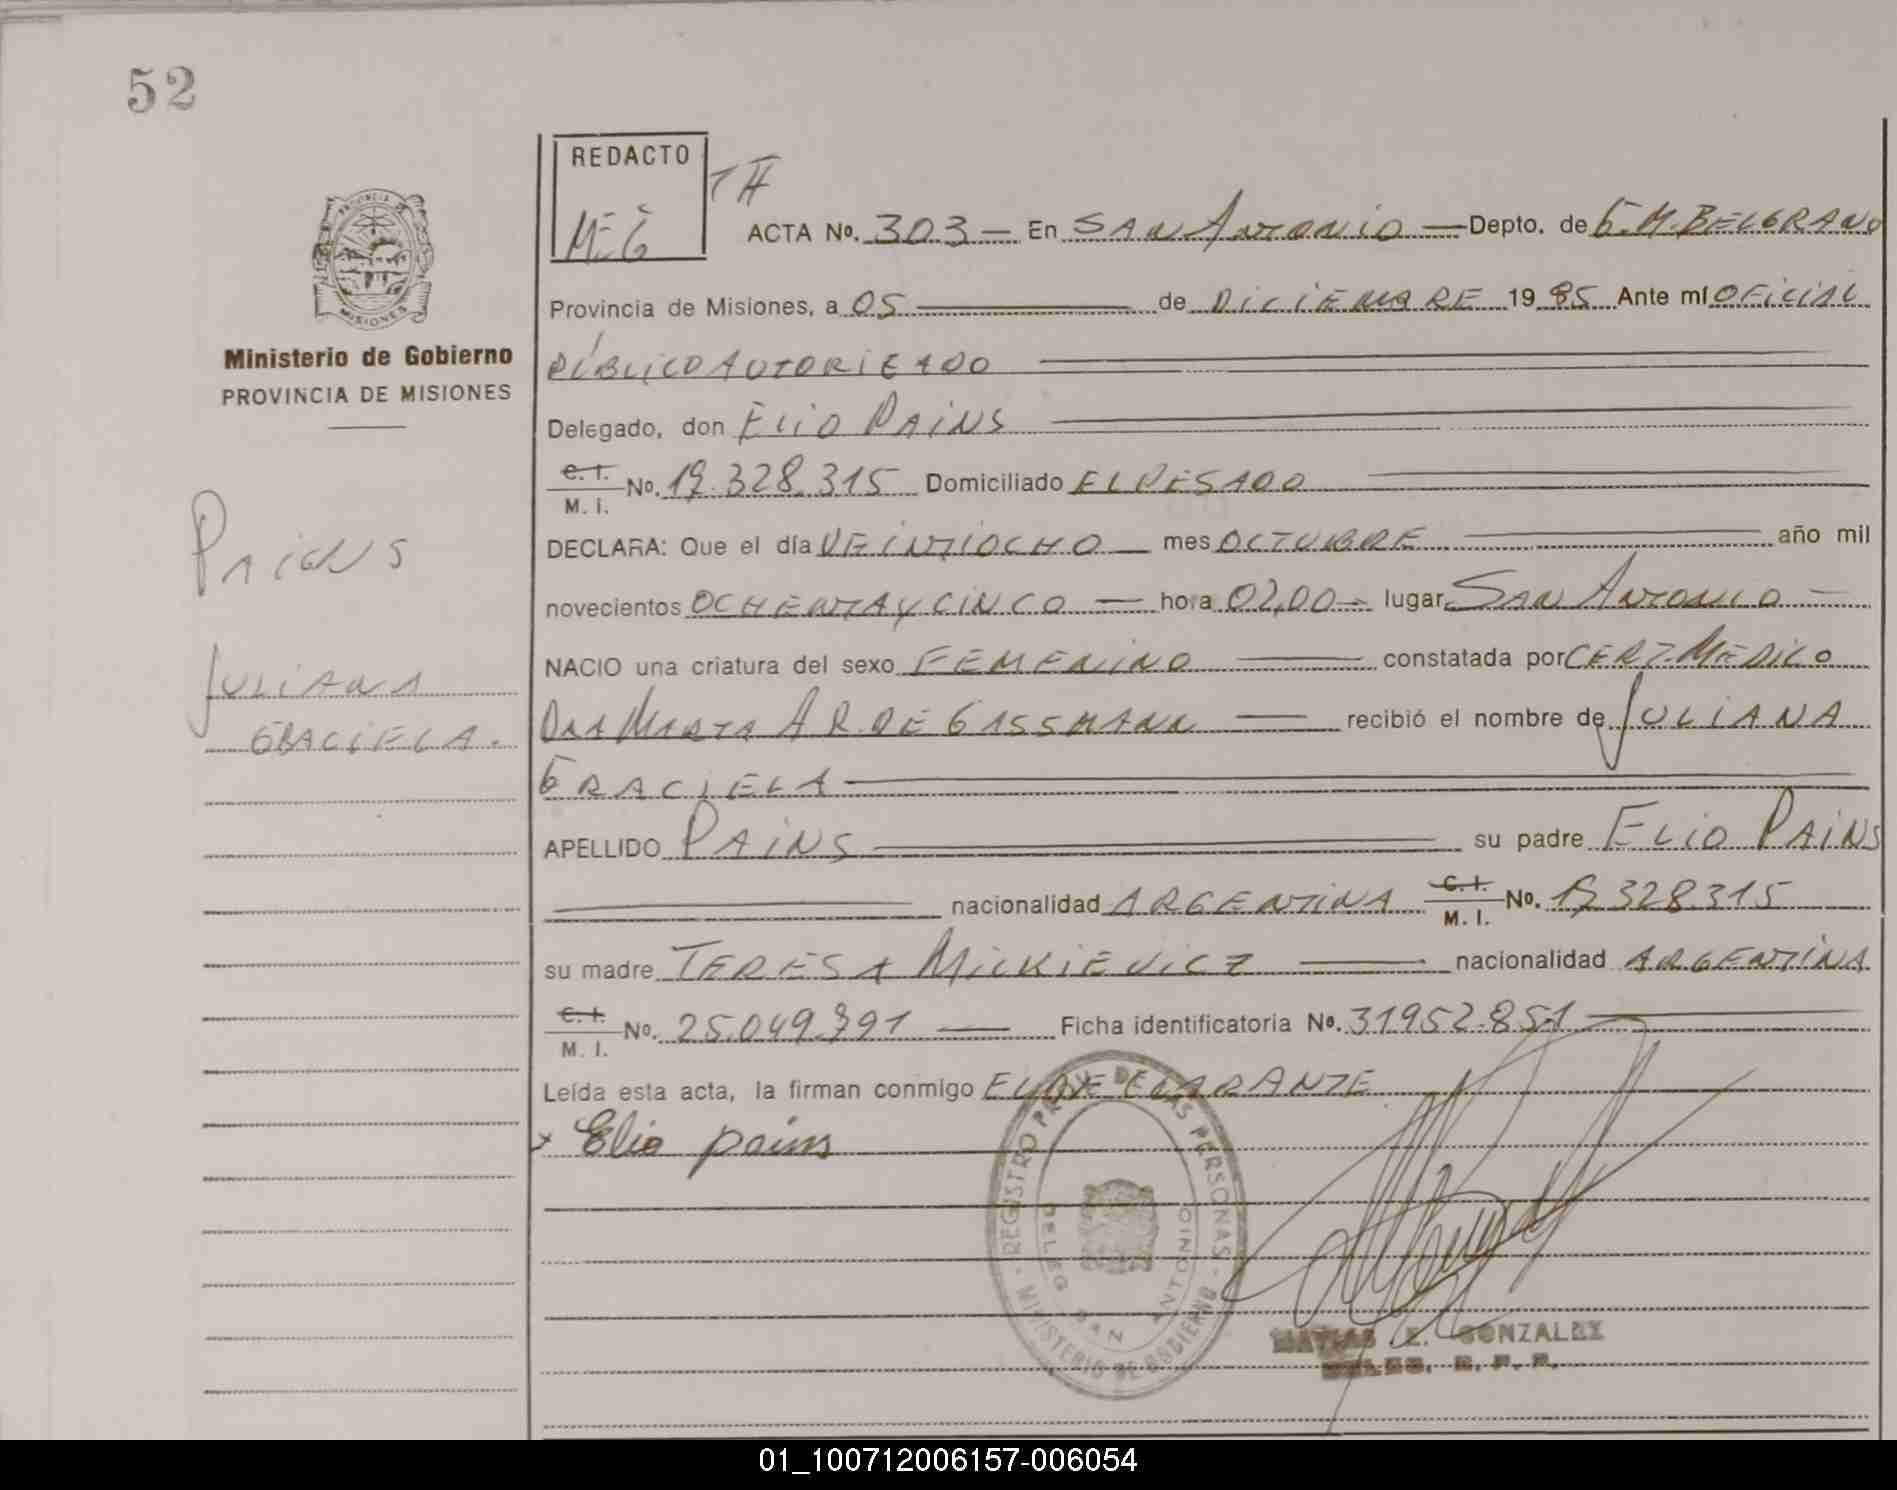 52
REDACTO
PROVINCIA DE
MISIONES
Ministerio de Gobierno
PROVINCIA DE MISIONES
ACTA No. 303 — En SAN ANTONIO — Depto. de G.M.BELGRANO
Provincia de Misiones, a 05 — de DICIEMBRE 19 85 Ante mí OFICIAL
PÚBLICO AUTORIZADO
Delegado, don ELIO PAINS
C. I.
M. I. No. 17.328.315 Domiciliado EL PESADO
DECLARA: Que el día VEINTIOCHO — mes OCTUBRE — año mil
novecientos OCHENTA Y CINCO — hora 02,00 — lugar SAN ANTONIO —
NACIO una criatura del sexo FEMENINO — constatada por CERT. MEDICO
DRA MARTA A R. DE GASSMANN — recibió el nombre de JULIANA
GRACIELA —
APELLIDO PAINS — su padre ELIO PAINS
— nacionalidad ARGENTINA C. I.
M. I. No. 17.328.315
su madre TERESA MICKIEVICZ — nacionalidad ARGENTINA
C. I.
M. I. No. 25.049.791 — Ficha identificatoria No. 31952.851 —
Leída esta acta, la firman conmigo EL DECLARANTE
x Elio pains
PAINS
JULIANA
GRACIELA.
REGISTRO PROV. DE LAS PERSONAS
MINISTERIO DE GOBIERNO
DELEG. SAN ANTONIO
MATIAS E. GONZALEZ
01_100712006157-006054